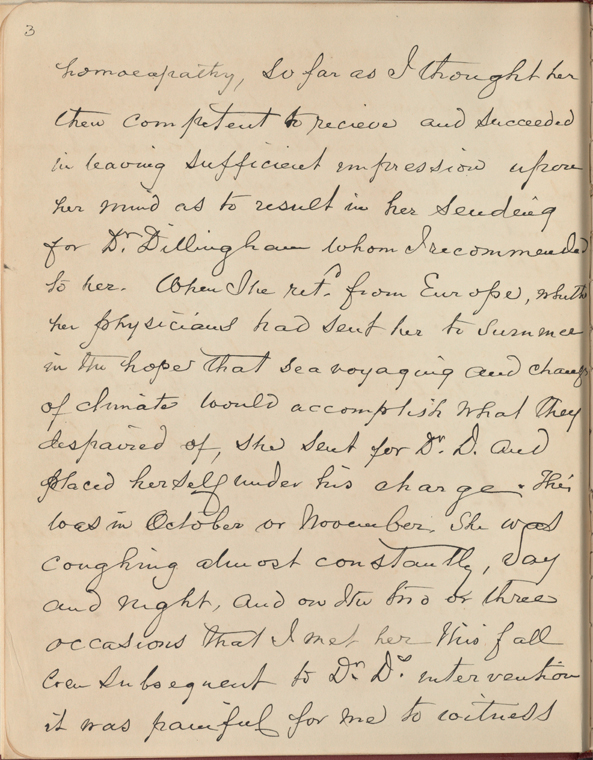 3
homoeopathy, so far as I thought her
then competent to recieve and succeeded
in leaving sufficient impression upon
her mind as to result in her sending
for Dr. Dillingham whom I recommended
to her. When She ret.d from Europe, whither
her physicians had sent her to summer
in the hope that sea voyaging and change
of climate would accomplish what they
despaired of, she sent for Dr. D. and
placed herself under his charge. This
was in October or November. She was
coughing almost constantly, day
and night, and on the two or three
occasions that I met her this fall
even subsequent to Dr. D's. intervention
it was painful for me to witness